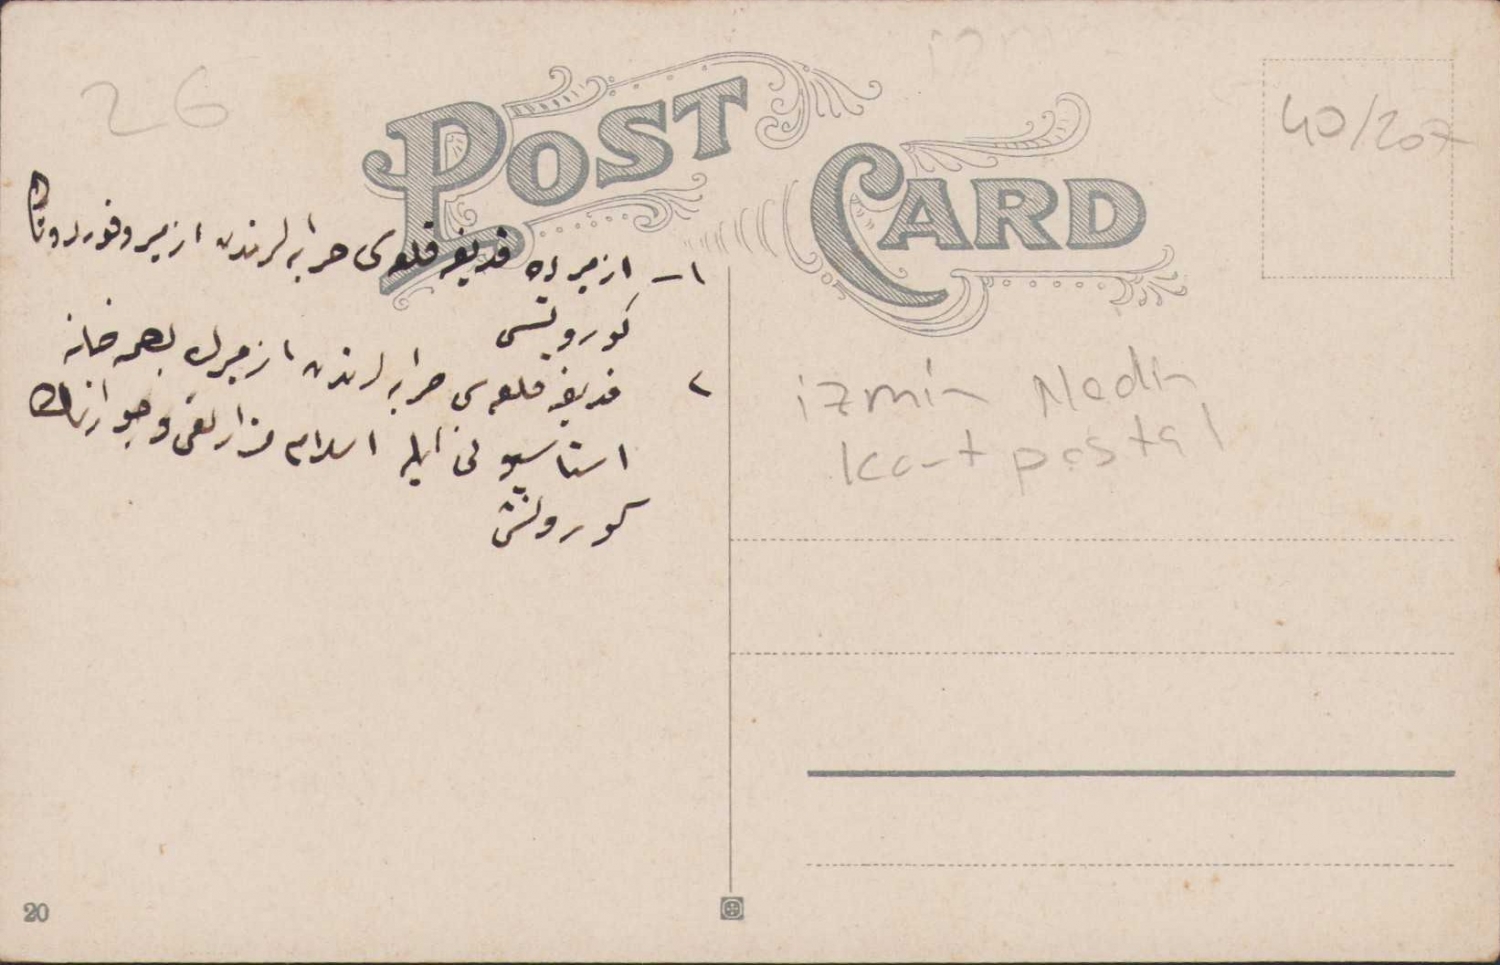 26
POST CARD
40/207
١ـ ازمیرده قدیفه قلعه‌سی خرابه‌لرندن ازمیر و قوردونك
كورونشی
٢ قدیفه قلعه‌سی خرابه‌لرندن ازمیرك بصمه خانه
استاسیونی ایله اسلام مزارلغی و جوارینك
كورونشی
izmir Nadir
kartpostal
20